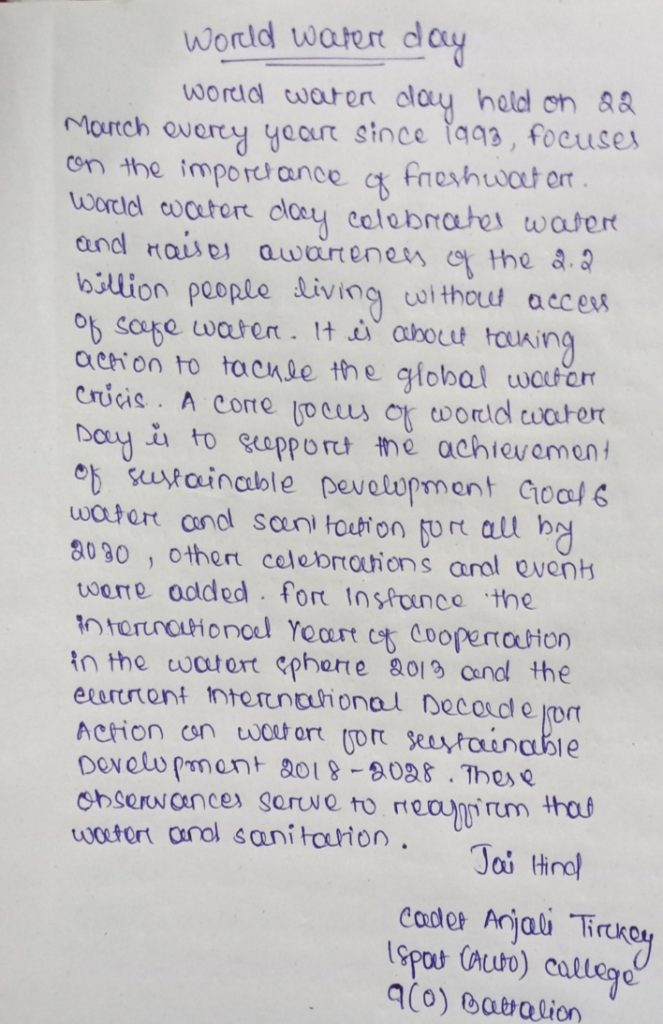 World water day
World water day held on 22
March every year since 1993, focuses
on the importance of freshwater.
World water day celebrates water
and raises awareness of the 2.2
billion people living without access
of safe water. It is about taking
action to tackle the global water
crisis. A core focus of world water
Day is to support the achievement
of sustainable Development Goal 6
water and sanitation for all by
2030, other celebrations and events
were added. for instance the
international Year of Cooperation
in the water sphere 2013 and the
current International Decade for
Action on water for sustainable
Development 2018-2028. These
observances serve to reaffirm that
water and sanitation.
Jai Hind
Cadet Anjali Tirkey
Ispat (Auto) College
9(O) Battalion